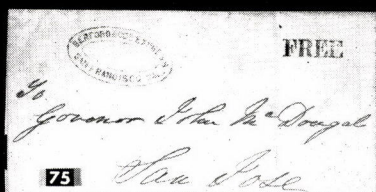 BERFORD & CO'S EXPRESS
SAN FRANCISCO
FREE
To
Governor John McDougal
San Jose
75